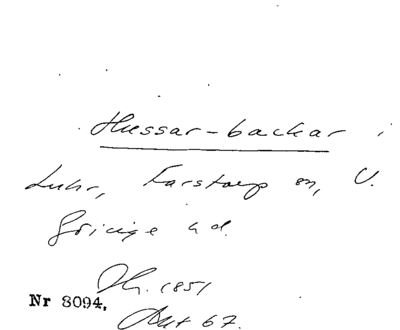 Hussar-backar i
Luhr, Farstorp sn, V.
Göinge hd.
1851
Nr 8094,
Akt 67.